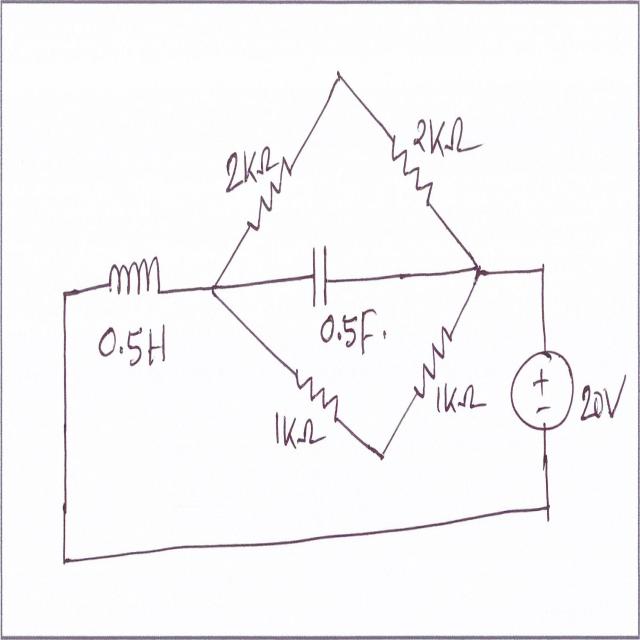 2KΩ
2KΩ
0.5H
0.5F.
1KΩ
1KΩ
+
-
20V